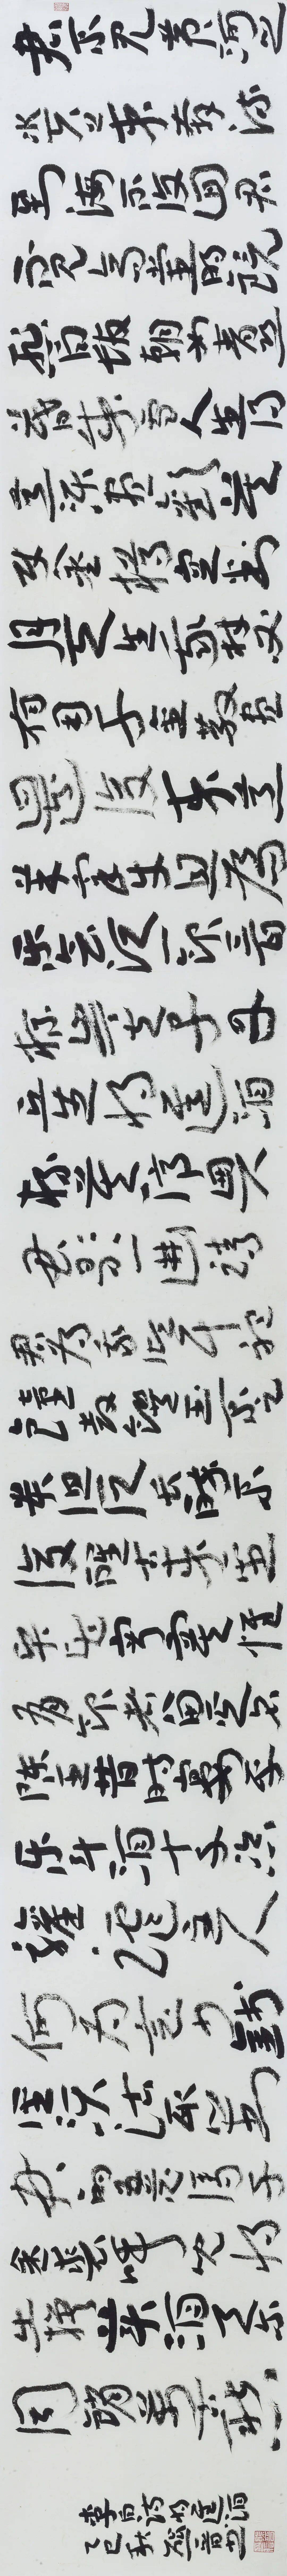 君不見黃河之
水天上來奔流
到海不復回君
不見高堂明鏡
悲白髮朝如青絲
暮成雪人生得
意須盡歡莫
使金樽空對
月天生我材必
有用千金散盡
還復來烹
羊宰牛且為
樂會須一飲三百
杯岑夫子丹
丘生將進酒
杯莫停與
君歌一曲請
君為我傾耳聽
鐘鼓饌玉不足
貴但願長醉不
復醒古來聖
賢皆寂寞惟
有飲者留其名
陳王昔時宴平
樂斗酒十千恣
歡謔主人
何為言少錢
徑須沽取對
君酌五花馬千
金裘呼兒將
出換美酒與爾
同銷萬古愁
李白詩將進酒
乙巳秋